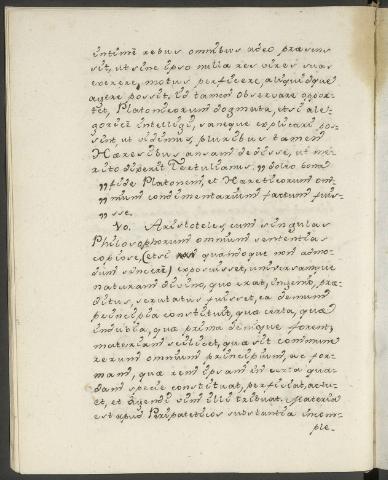 intimè rebus omnibus adeo præsens
sit, ut sine ipso nulla res vires suas
exerere, motus perficere, aliquidque
agere possit. Id tamen observare oppor-
tet, Platonicorum dogmata, etsi ale-
goricè intelligi, sanèque explicari pos-
sint ut vidimus, pluribus tamen
Hæresibus ansam dedisse, ut me-
rito dixerit Tertulianus. „ doleo bona
„ fide Platonem, et Hæreticorum om-
„ nium condimentarium factum fuis-
„ sse.
Vo. Aristoteles cum singulas
Philosophorum omnium sententias
copiose, (etsi quandoque non admo-
dum sincerè) exposuisset, universamque
naturam divino, quo erat, ingenio, præ-
ditus, scrutatus fuisset, ea demum
principia constituit, quæ certa, quæ
indubia, quæ prima denique forent,
materiam scilicet, quæ sit commune
rerum omnium principium, ac for-
mam, quæ rem ipsam in certa qua-
dam specie constituat, perficiat, actu-
et, et agendi vim illi tribuat. Materia
est apud Peripateticos substantia incom-
ple-